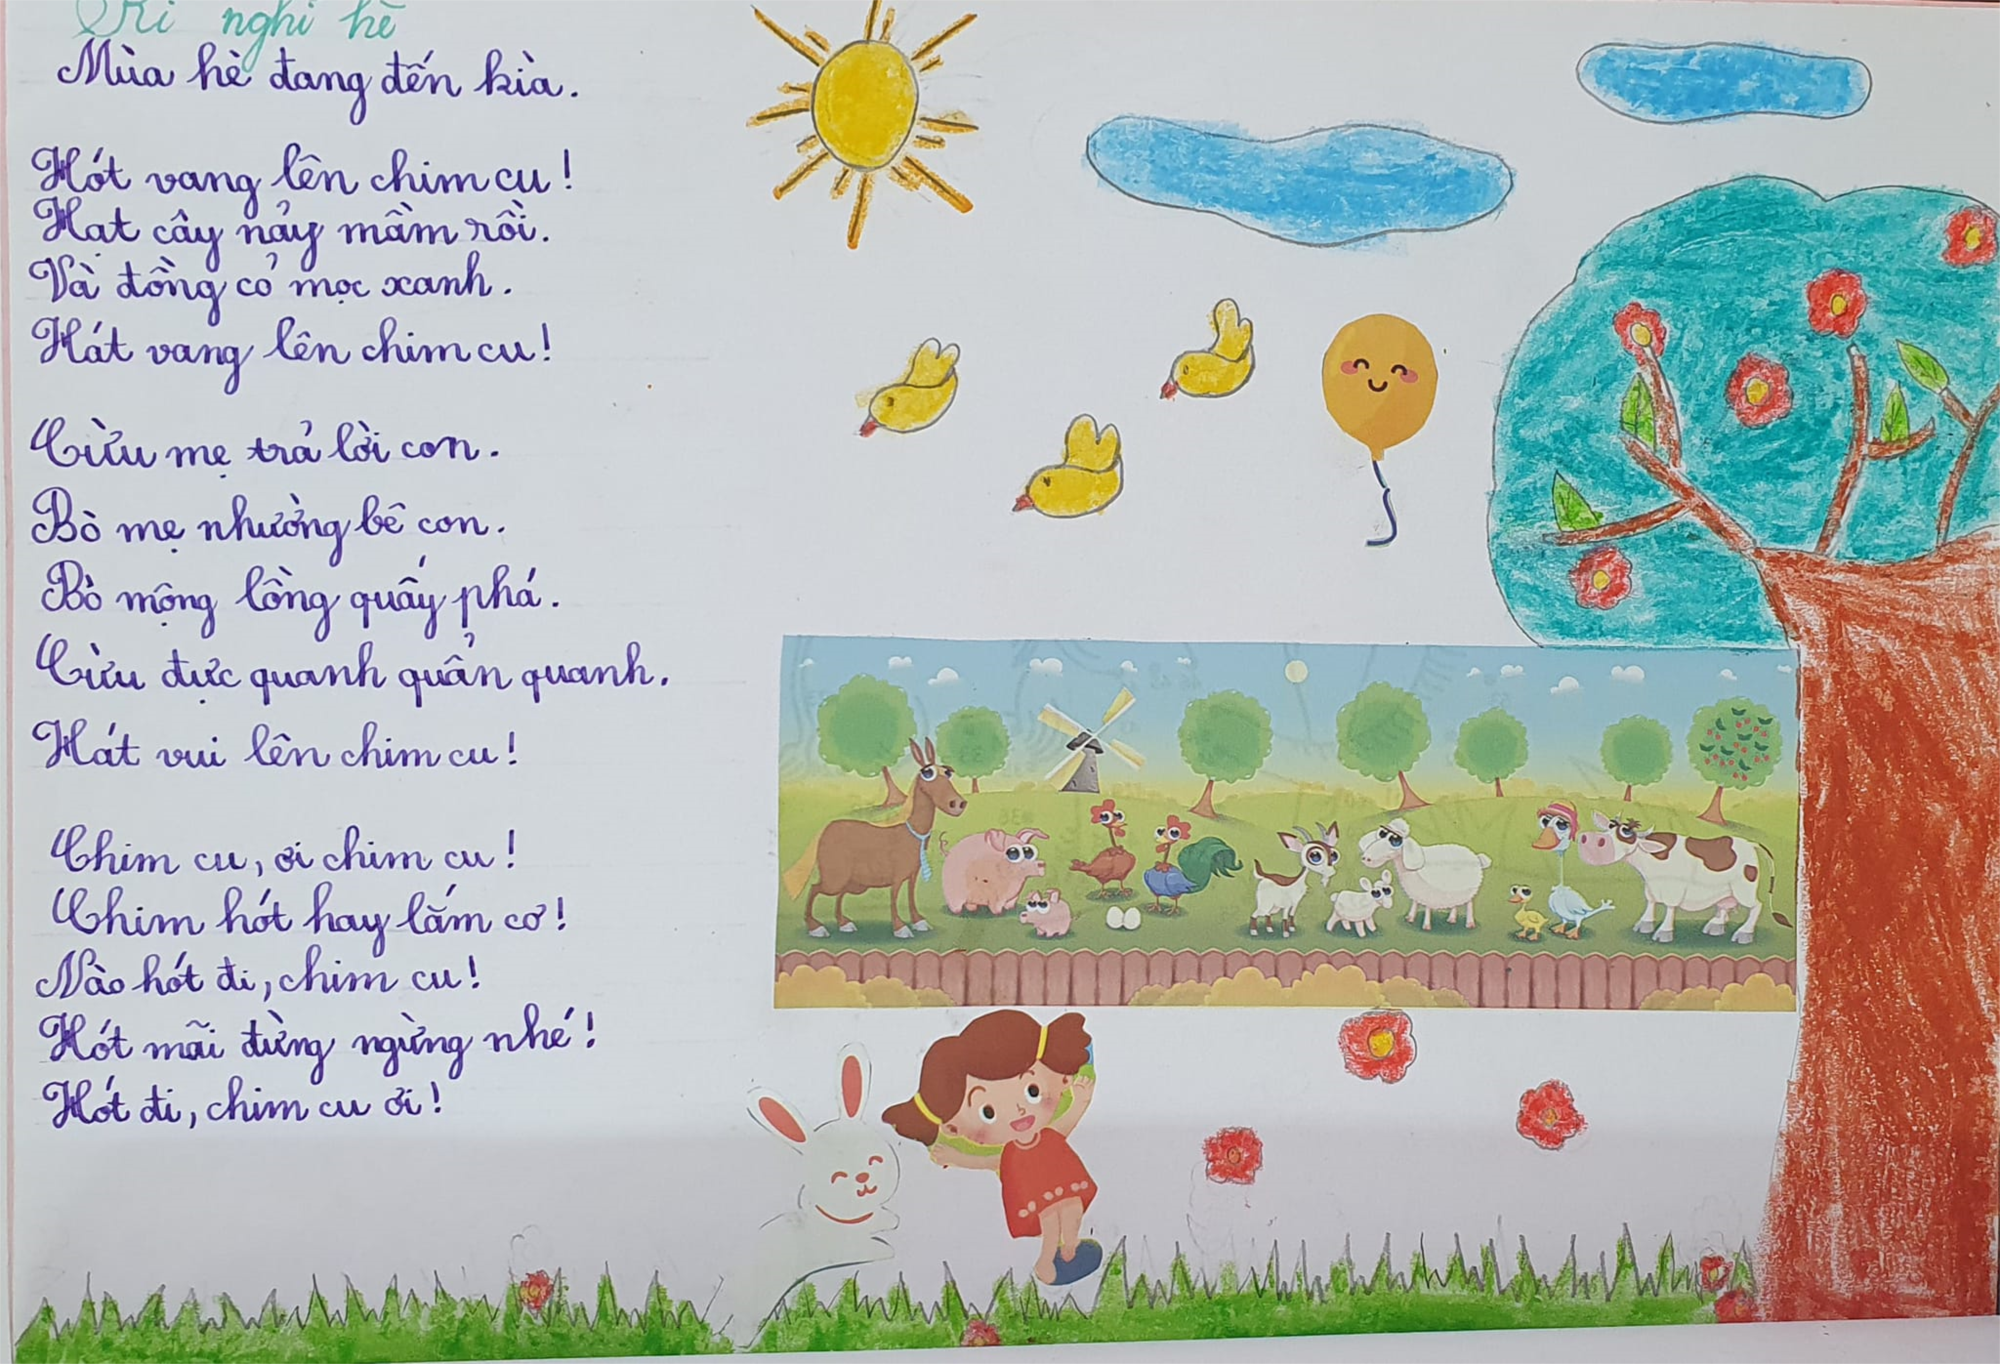 nghỉ hè
Mùa hè đang đến kìa.
Hót vang lên chim cu!
Hạt cây nảy mầm rồi.
Và đồng cỏ mọc xanh.
Hát vang lên chim cu!
Cừu mẹ trả lời con.
Bò mẹ nhường bê con.
Bò mộng lồng quấy phá.
Cừu đực quanh quẩn quanh.
Hát vui lên chim cu!
Chim cu, ơi chim cu!
Chim hót hay lắm cơ!
Nào hót đi, chim cu!
Hót mãi đừng ngừng nhé!
Hót đi, chim cu ơi!